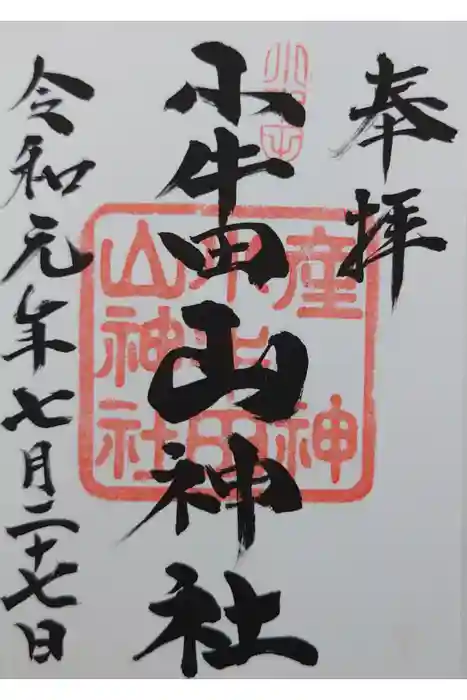 奉拝
小牛田
小牛田山神社
産神
小牛田
山神社
令和元年七月二十七日